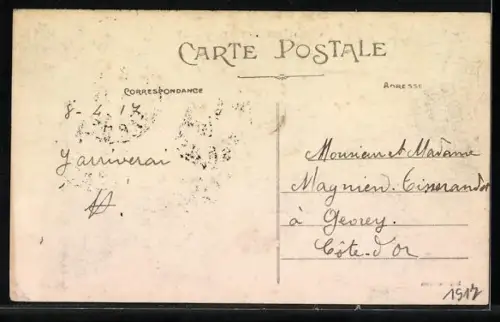 CARTE POSTALE
CORRESPONDANCE
ADRESSE
8-4-17
J'arriverai
Monsieur et Madame
Magnien-Tisserandot
à Gevrey.
Côte-d'Or
1917